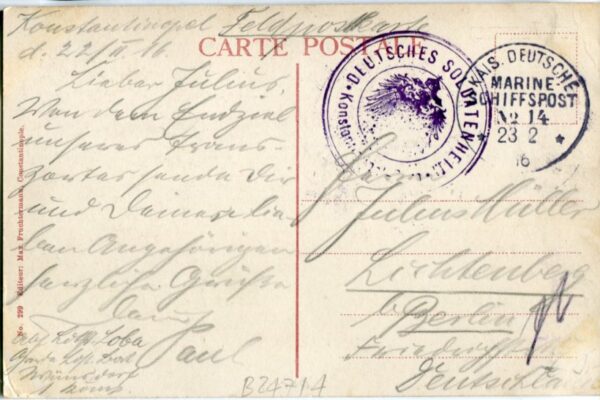 Konstantinopel Feldpostkarte
d. 22/II 16
CARTE POSTALE
Lieber Julius,
Von dem Endziel
unseres Trans-
portes sende Dir
und Deinen lie-
ben Angehörigen
herzliche Grüße
Paul
DEUTSCHES SOLDATENHEIM
KAIS. DEUTSCHE
MARINE-
SCHIFFSPOST
No 14
23 2
16
Julius Müller
Lichtenberg
b/Berlin
Deutschland
No. 299 Editeur: Max Fruchtermann, Constantinople.
B24714